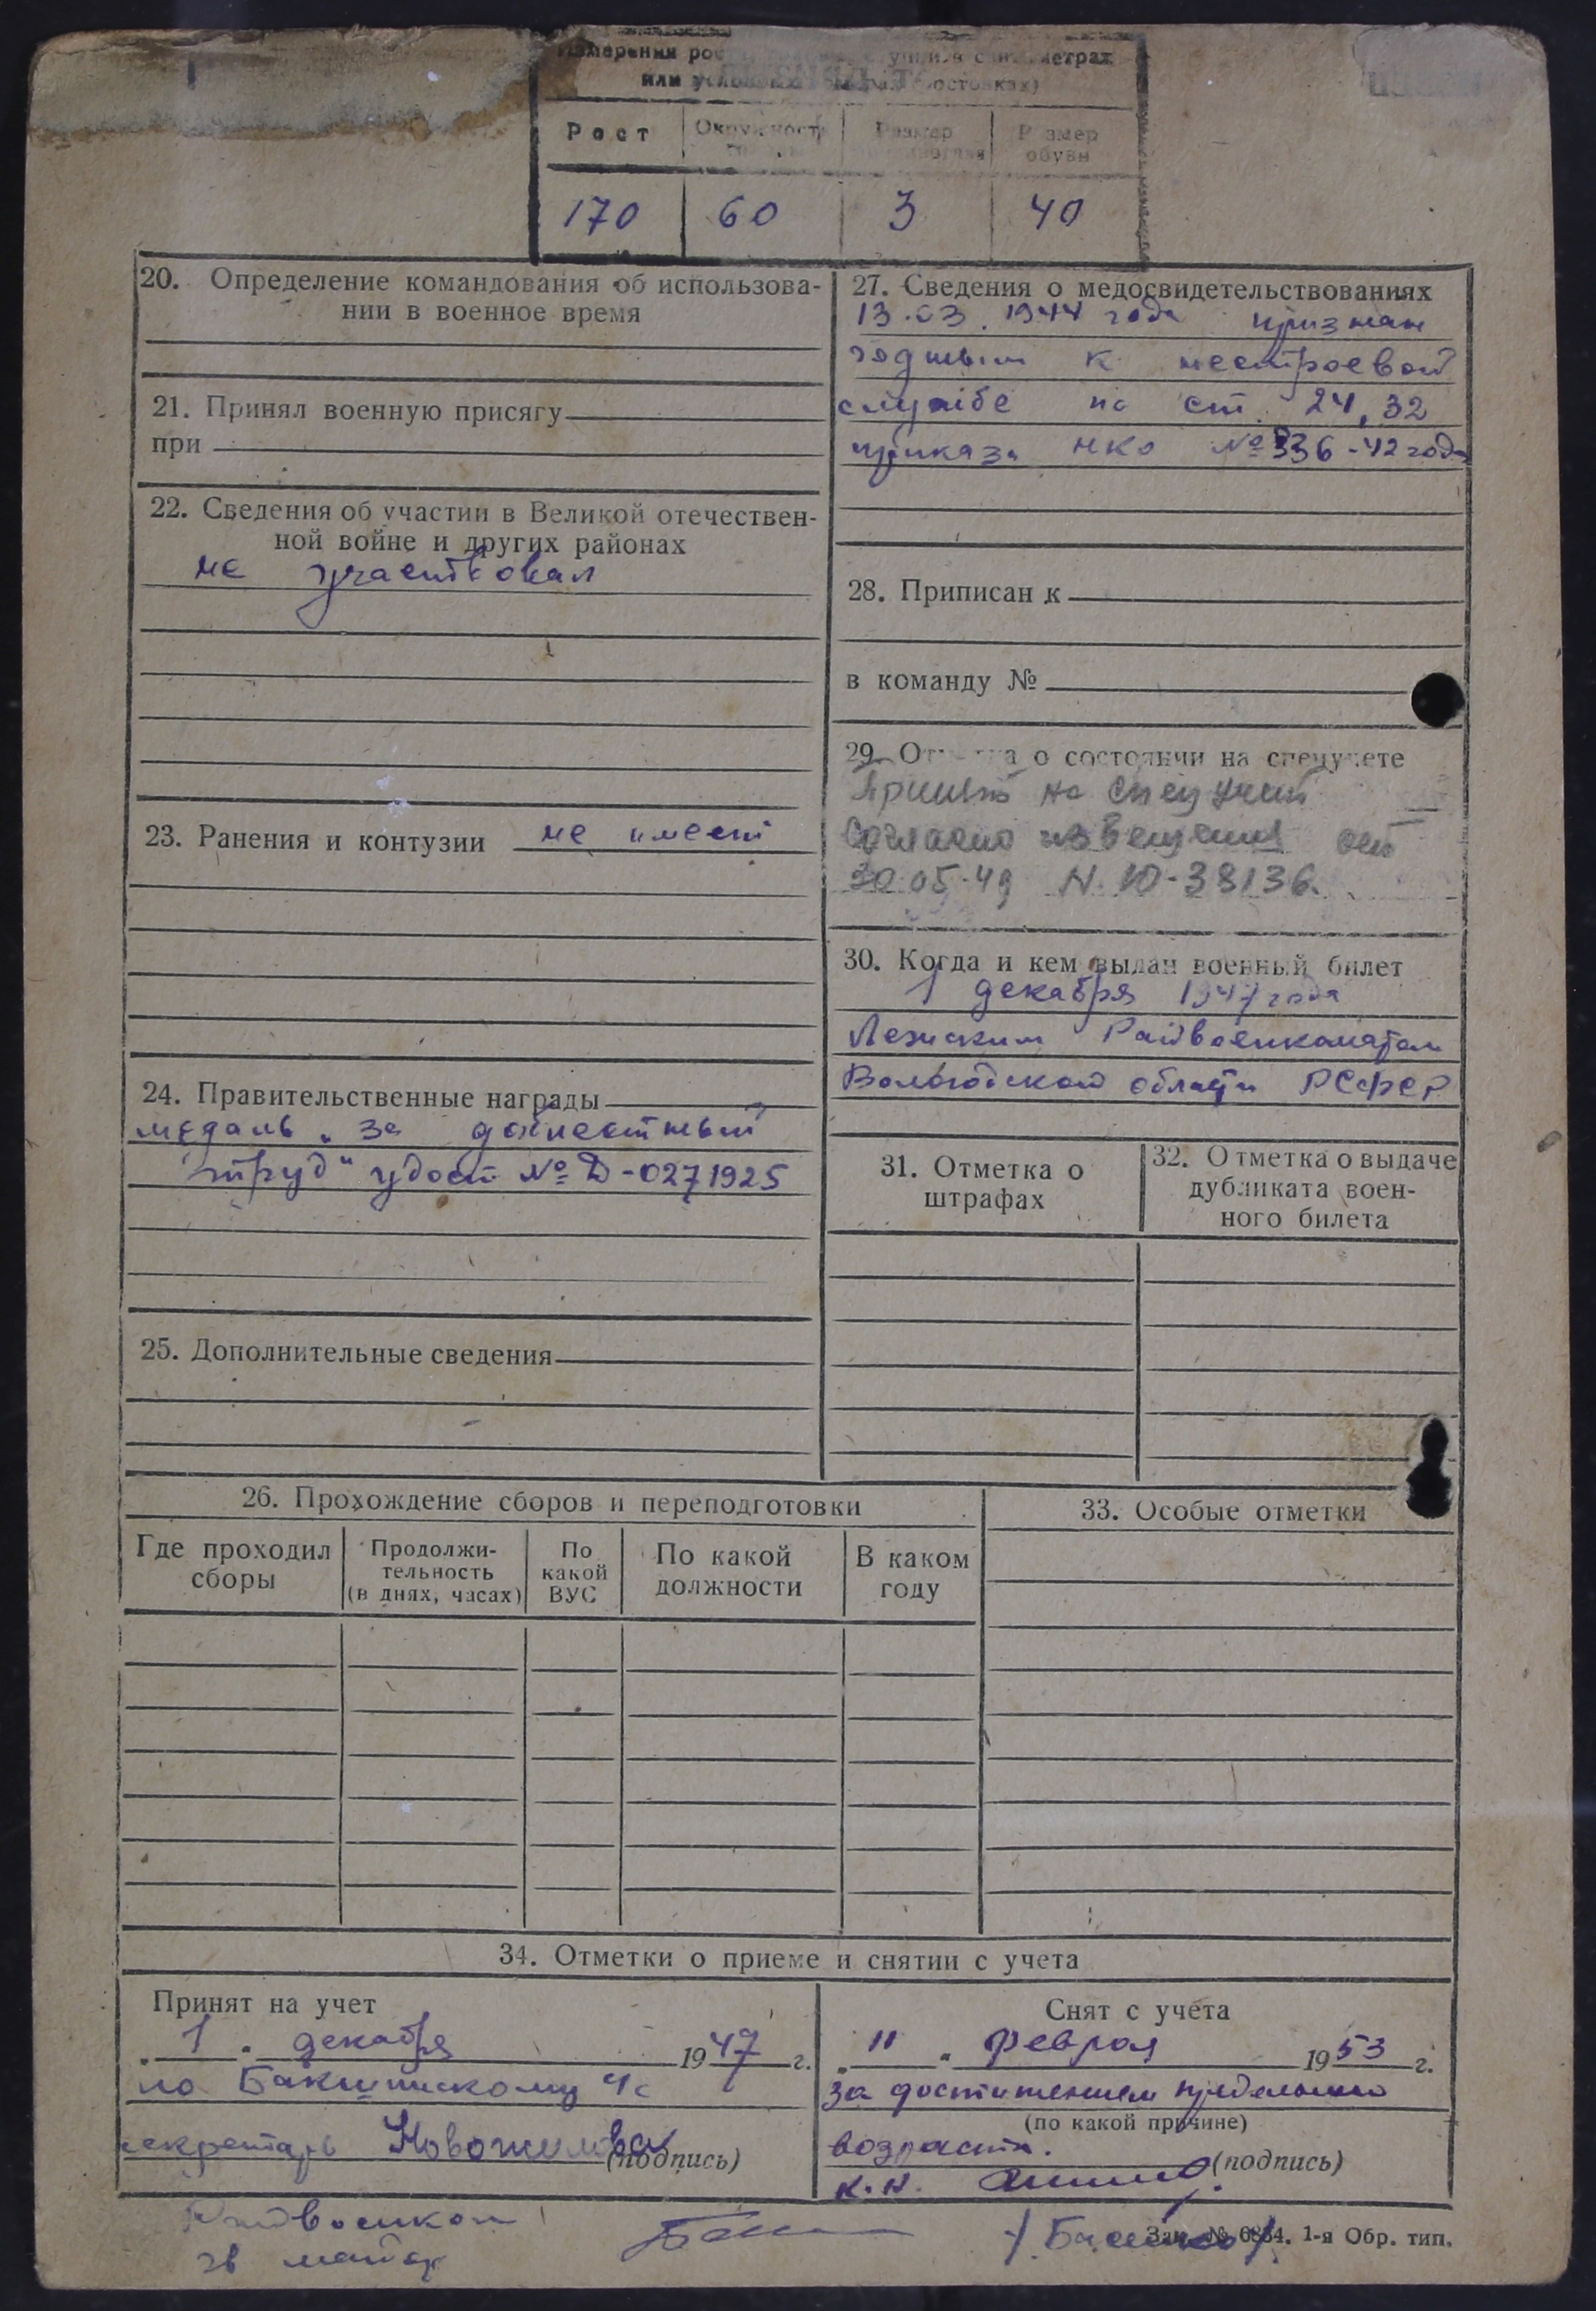 Измерения
или
Рост Окружность Размер Размер
обуви
170 60 3 40
20. Определение командования об использова-
нии в военное время
21. Принял военную присягу
при
22. Сведения об участии в Великой отечествен-
ной войне и других районах
не участвовал
23. Ранения и контузии не имеет
24. Правительственные награды
медаль „за доблестный
труд" удост № Д-0271925
25. Дополнительные сведения
27. Сведения о медосвидетельствованиях
13.03.1944 года признан
годным к нестроевой
службе по ст. 24, 32
приказа НКО № 336-42 года
28. Приписан к
в команду №
29. Отметка о состоянии на спецучете
Принят на спец учет
согласно извещения от
30.05.49 N. Ю-38136.
30. Когда и кем выдан военный билет
1 декабря 1947 года
Райвоенкоматом
Вологодской области РСФСР
31. Отметка о
штрафах
32. Отметка о выдаче
дубликата воен-
ного билета
26. Прохождение сборов и переподготовки
Где проходил
сборы
Продолжи-
тельность
(в днях, часах)
По
какой
ВУС
По какой
должности
В каком
году
33. Особые отметки
34. Отметки о приеме и снятии с учета
Принят на учет
„1" декабря 1947 г.
по с
секретарь Новожилова
(подпись)
Снят с учета
„11" февраля 1953 г.
за достижением предельного
(по какой причине)
возраста.
(подпись)
Райвоенком
гв майор
Зак. № 6864. 1-я Обр. тип.